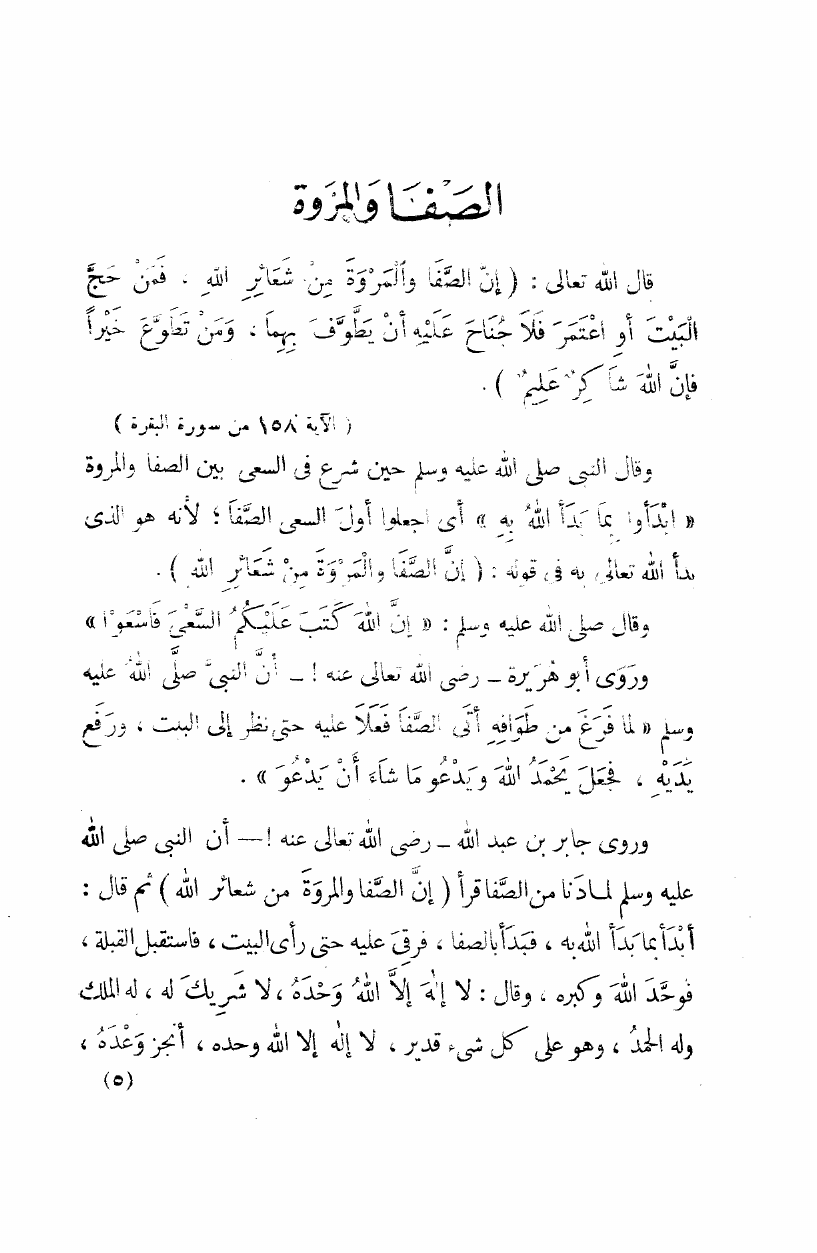 الصَّفَا وَالمَرْوَة
قال الله تعالى : ( إنّ الصَّفَا وَالْمَرْوَةَ مِنْ شَعَائِرِ اللهِ ، فَمَنْ حَجَّ
الْبَيْتَ أوِ اعْتَمَرَ فَلَا جُنَاحَ عَلَيْهِ أنْ يَطَّوَّفَ بِهِمَا ، وَمَنْ تَطَوَّعَ خَيْراً
فإنَّ اللهَ شَاكِرٌ عَلِيمٌ ) .
( الآية ١٥٨ من سورة البقرة )
وقال النبى صلى الله عليه وسلم حين شرع فى السعى بين الصفا والمروة
« ابْدَأوا بِمَا بَدَأَ اللهُ بِهِ » أى اجعلوا أولَ السعى الصَّفَا ؛ لأنه هو الذى
بدأ الله تعالى به فى قوله : ( إنَّ الصَّفَا والْمَرْوَةَ مِنْ شَعَائِرِ اللهِ ) .
وقال صلى الله عليه وسلم : « إنَّ اللهَ كَتَبَ عَلَيْكُمُ السَّعْىَ فَاسْعَوْا »
ورَوَى أبو هُرَيرة – رضى الله تعالى عنه ! – أنَّ النبىَّ صلَّى اللهُ عليه
وسلم « لما فَرَغَ من طَوَافِهِ أتَى الصَّفَا فَعَلَا عليه حتى نظر إلى البيت ، ورَفَعَ
يَدَيْهِ ، فجَعَلَ يَحْمَدُ اللهَ ويَدْعُو مَا شَاءَ أنْ يَدْعُوَ » .
وروى جابر بن عبد الله – رضى الله تعالى عنه ! — أن النبى صلى الله
عليه وسلم لما دَنَا من الصَّفَا قرأ ( إنَّ الصَّفَا والمروَةَ من شعائر الله ) ثم قال :
أبْدَأُ بما بَدَأَ الله به ، فبَدَأ بالصفا ، فرقِىَ عليه حتى رأى البيت ، فاستقبل القبلة ،
فوحَّدَ اللهَ وكبره ، وقال : لا إلهَ إلاَّ اللهُ وَحْدَهُ ، لا شَرِيكَ له ، له الملك
وله الحمدُ ، وهو على كل شىء قدير ، لا إله إلا الله وحده ، أنجز وَعْدَهُ ،
(٥)